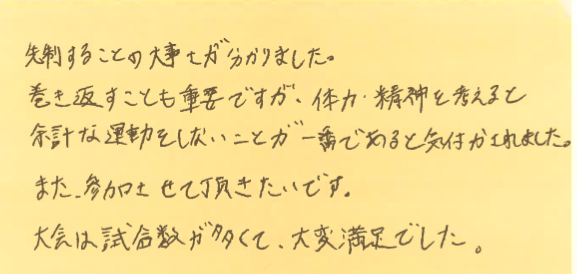 先制することの大事さが分かりました。
巻き返すことも重要ですが、体力・精神を考えると
余計な運動をしないことが一番であると気付かされました。
また、参加させて頂きたいです。
大会は試合数が多くて、大変満足でした。